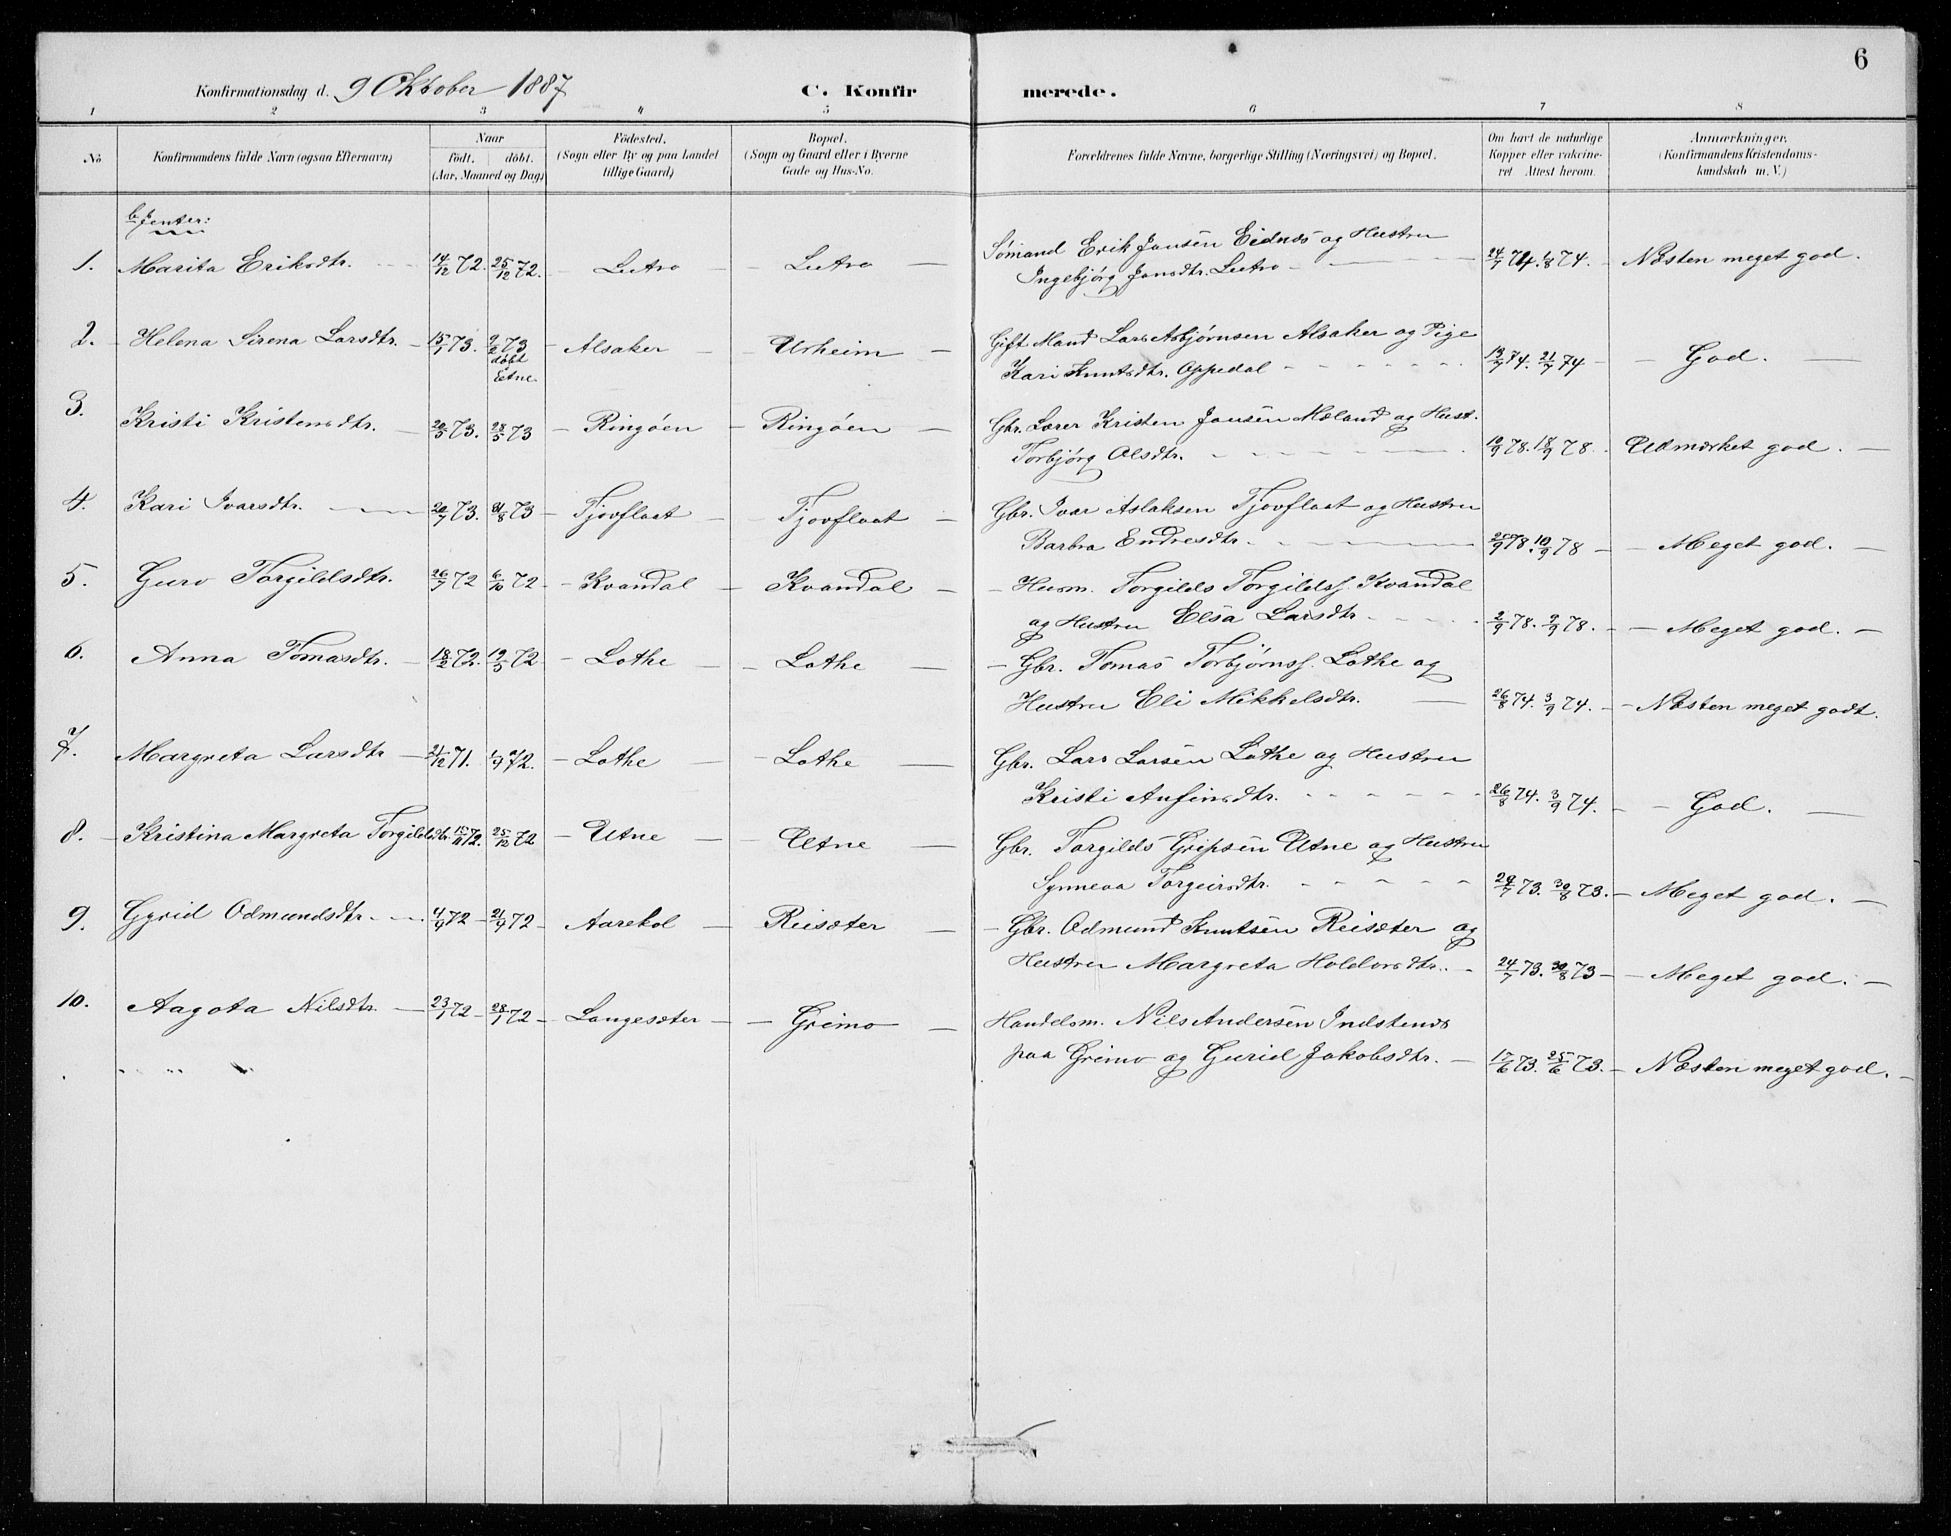 6
Konfirmationsdag d. 9 Oktober 1887 C. Konfirmerede.
1 2 3 4 5 6 7 8
No Konfirmandens fulde Navn (ogsaa Efternavn) Naar födt. döbt. (Aar, Maaned og Dag) Födested. (Sogn eller By og paa Landet tillige Gaard) Bopæl. (Sogn og Gaard eller i Byerne Gade og Hus-No. Forældrenes fulde Navne, borgerlige Stilling (Næringsvei) og Bopæl. Om havt de naturlige Kopper eller vakcineret Attest herom. Anmærkninger. (Konfirmandens Kristendomskundskab m. V.)
b. Jenter:
1. Marita Eriksdtr. 14/12 72. 25/12 72. Lutro Lutro Sømand Erik Jansen Eidnes og Hustru
Ingebjørg Jansdtr. Lutro 24/7 74. 1/8 74. Næsten meget god.
2. Helena Sirena Larsdtr. 15/1 73. 9/2 73 döbt Etne Alsaker Urheim Gift Mand Lars Asbjørnsen Alsaker og Pige
Kari Knutsdtr. Oppedal 13/7 74. 21/7 74 God.
3. Kristi Kristensdtr. 20/5 73. 28/5 73 Ringøen Ringøen Gbr. Lærer Kristen Jansen Mæland og Hust.
Torbjørg Olsdtr. 10/9 78. 18/9 78. Udmærket god.
4. Kari Ivarsdtr. 20/7 73. 31/8 73 Tjovflaat Tjovflaat Gbr. Ivar Aslaksen Tjovflaat og Hustru
Barbra Endresdtr. 2/9 78. 10/9 78 Meget god.
5. Guro Torgildsdtr. 26/7 72 6/10 72 Kvandal Kvandal Husm. Torgilds Torgildss. Kvandal
og Hustru Elsa Larsdtr. 2/9 78. 9/9 78. Meget god.
6. Anna Tomasdtr. 18/2 72. 19/5 72 Lothe Lothe Gbr. Tomas Torbjørnss. Lothe og
Hustru Eli Mikkelsdtr. 26/8 74. 3/9 74. Næsten meget godt.
7. Margreta Larsdtr 21/12 71. 1/4 72. Lothe Lothe Gbr. Lars Larsen Lothe og Hustru
Kristi Aufinsdtr. 26/8 74. 3/9 74. God.
8. Kristina Margreta Torgildsdtr. 15/11 72. 25/12 72 Utne Utne Gbr. Torgilds Gripsen Utne og Hustru
Synneva Torgeirsdtr. 24/7 73. 30/8 73. Meget god.
9. Gyrid Odmundsdtr. 4/9 72 21/9 72 Aarekol Reisæter Gbr. Odmund Knutsen Reisæter og
Hustru Margreta Holdorsdtr. 24/7 73. 30/8 73 Meget god.
10. Aagota Nilsdtr. 23/1 72 28/1 72 Langesæter Grimo Handelsm. Nils Andersen Indstenes
paa Grimo og Gurid Jakobsdtr. 17/6 73. 25/6 73. Næsten meget god.